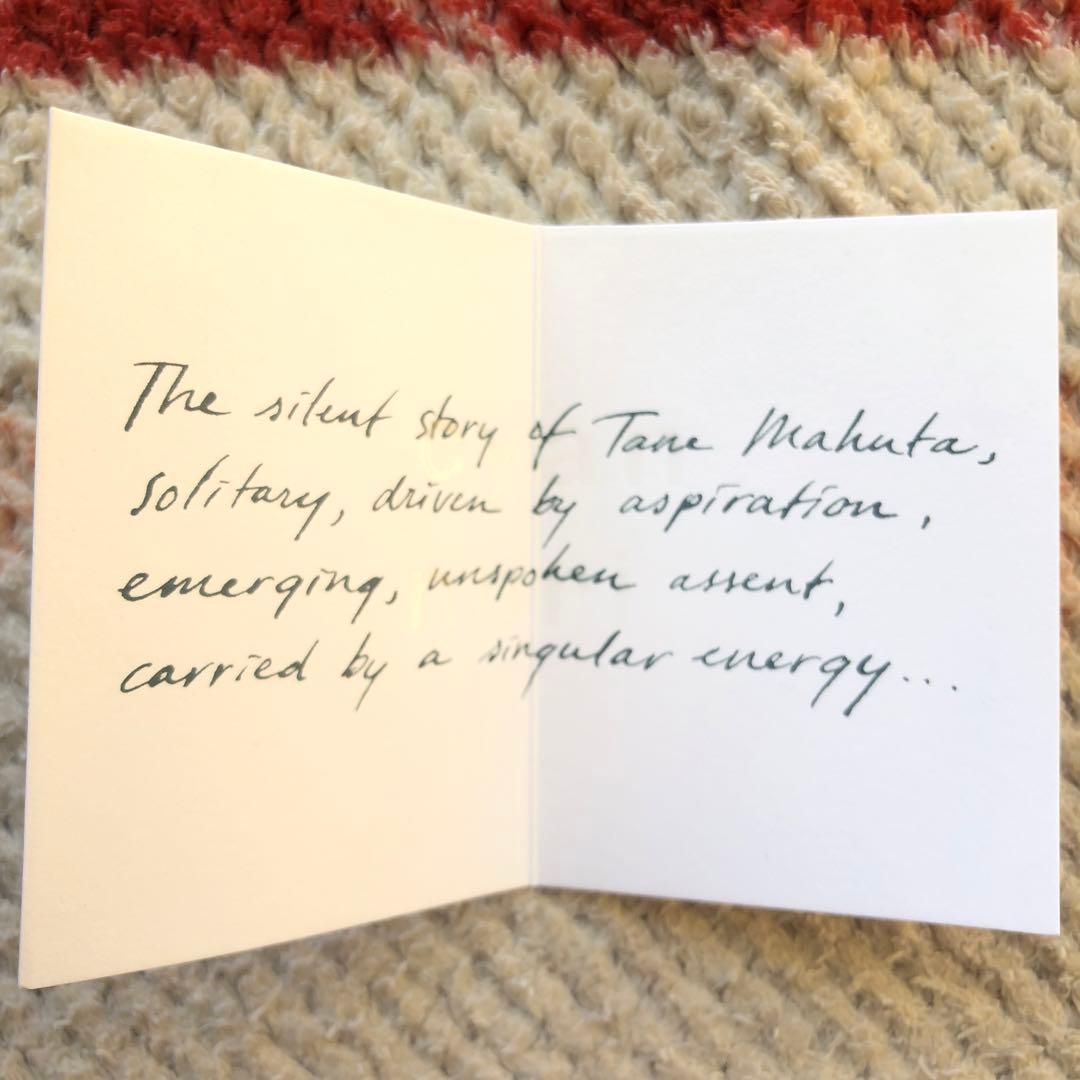 The silent story of Tane Mahuta,
solitary, driven by aspiration,
emerging, unspoken assent,
carried by a singular energy...